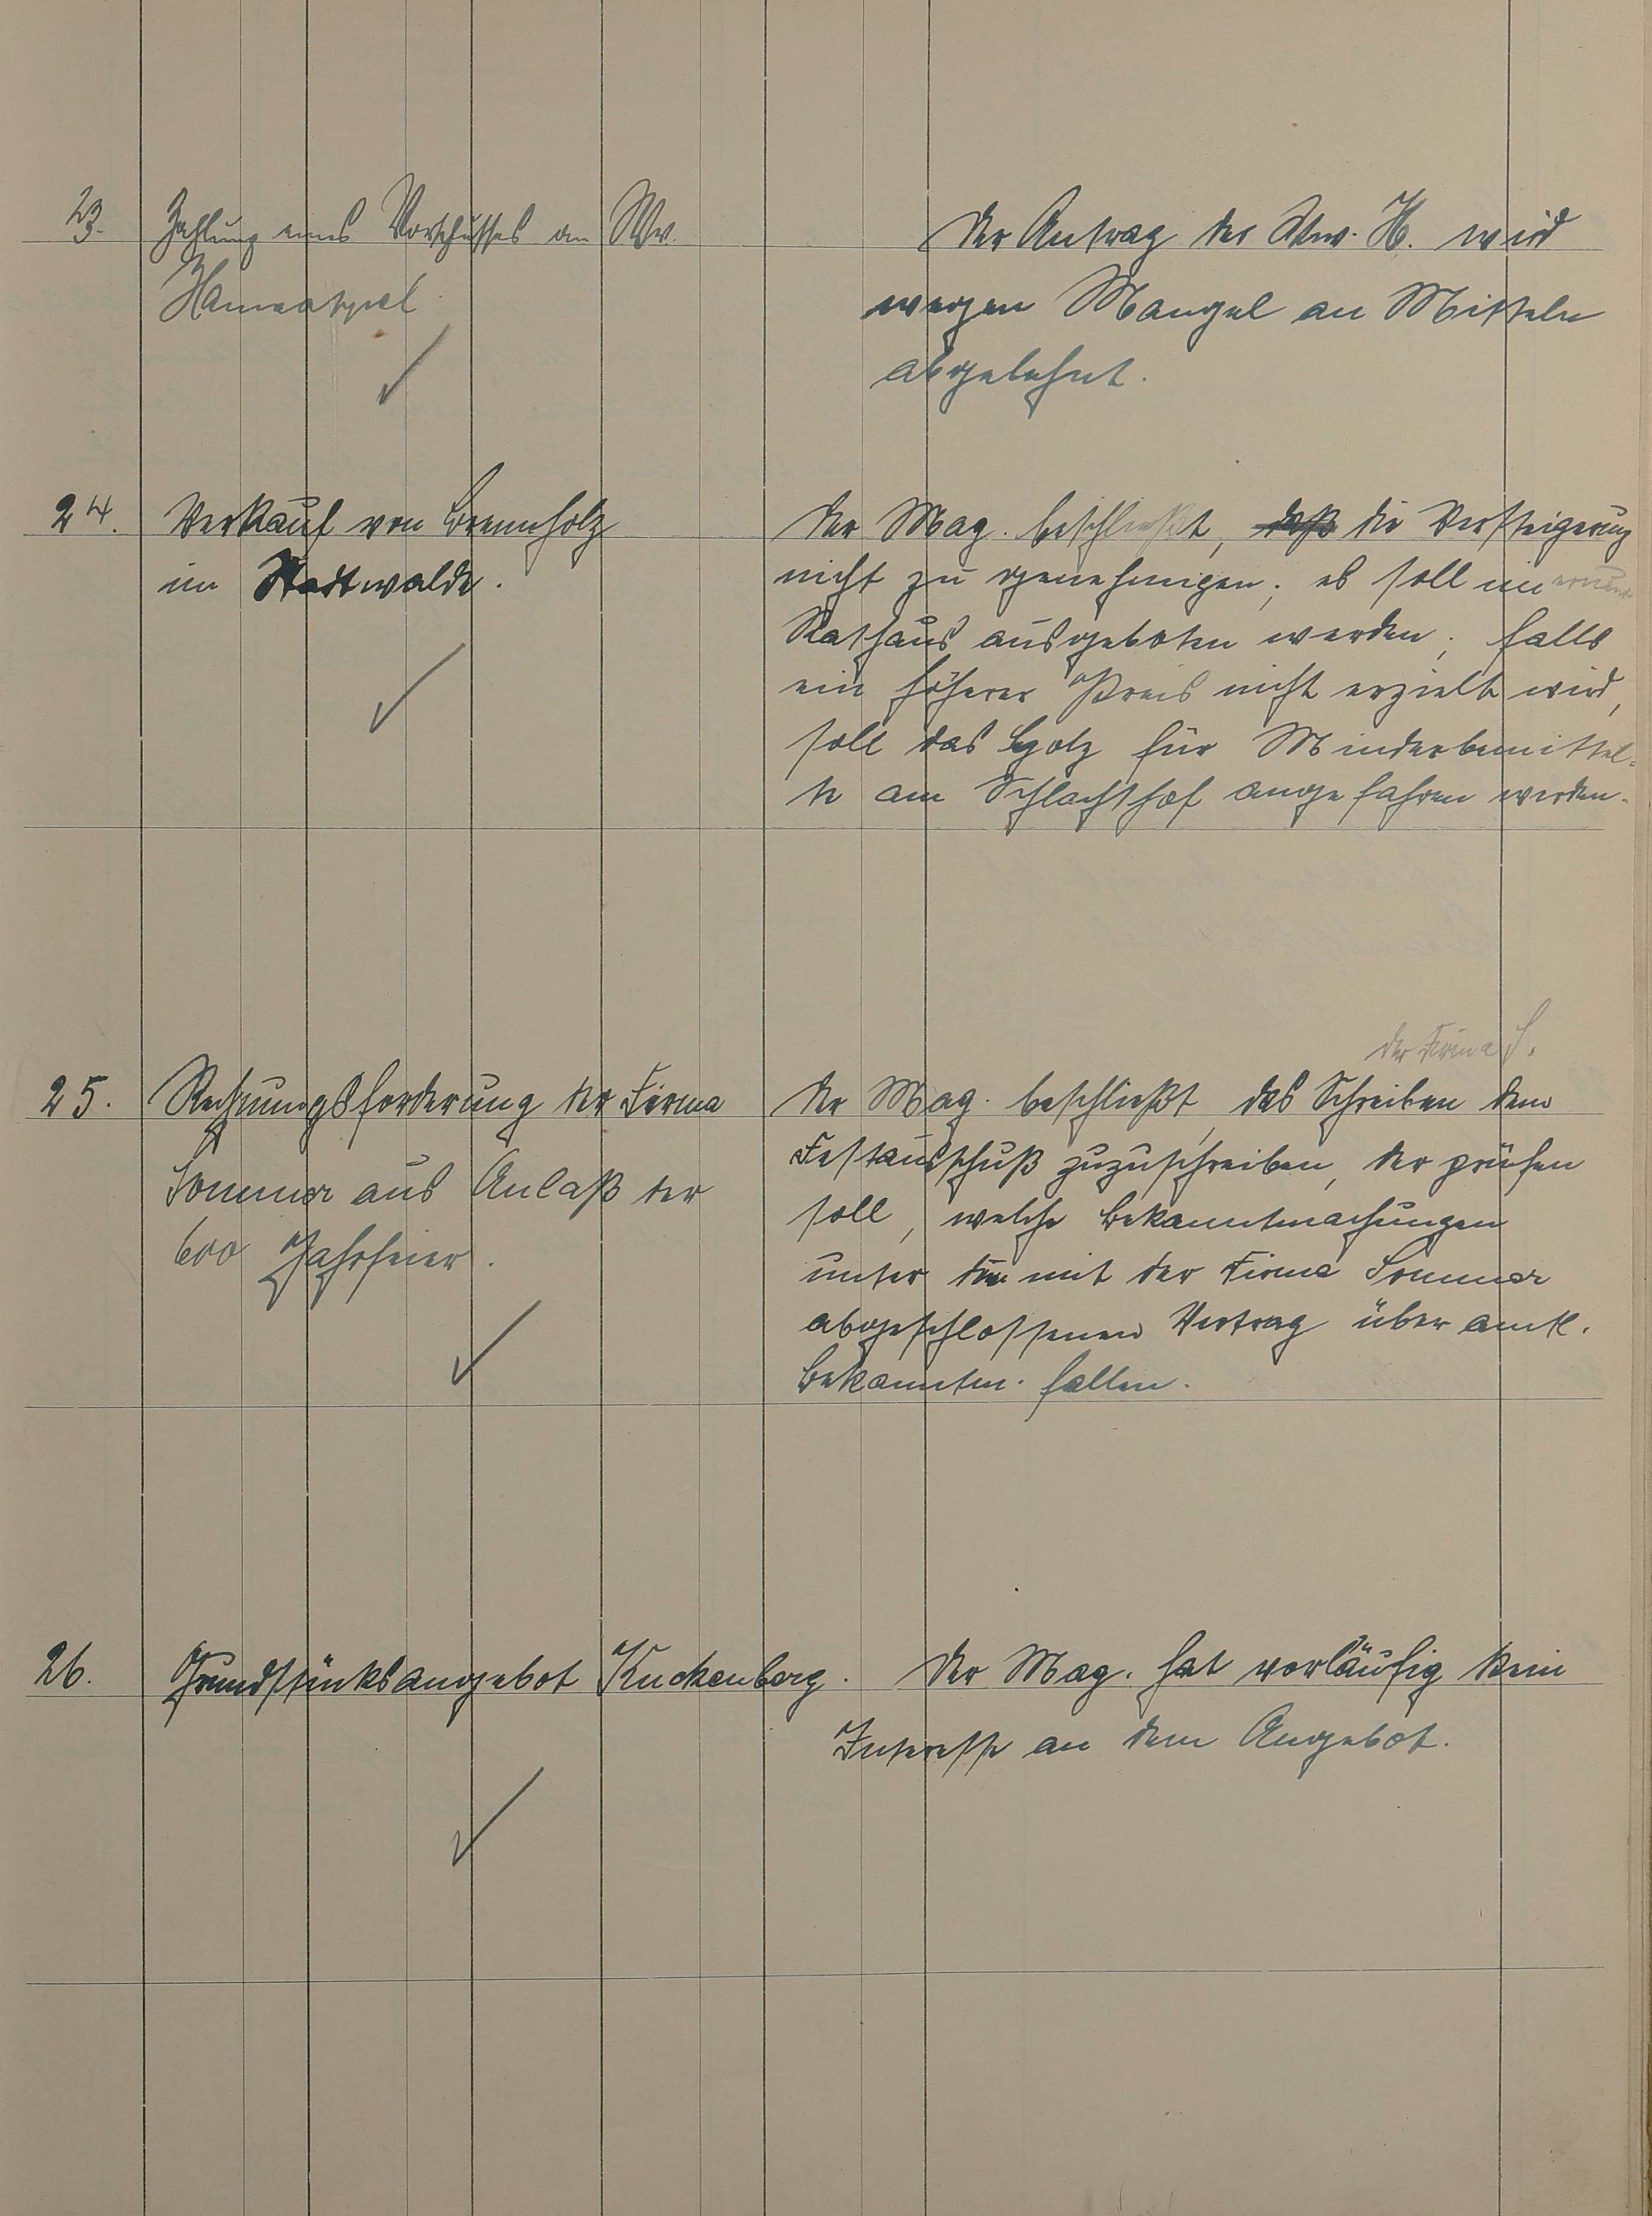 23.
Zahlung eines Vorschusses an Ww.
Der Antrag der Ww. H. wird
wegen Mangel an Mitteln
abgelehnt.
24.
Verkauf von Brennholz
im Stadtwalde.
Der Mag. beschließt, daß die Versteigerung
nicht zu genehmigen; es soll im erneut
Rathaus ausgeboten werden; falls
ein höherer Preis nicht erzielt wird,
soll das Holz für Minderbemittel-
te am Schlachthof angefahren werden.
25.
Rechnungsforderung der Firma
Sommer aus Anlaß der
600 Jahrfeier.
der Firma S.
Der Mag. beschließt, das Schreiben dem
Festausschuß zuzuschreiben, der prüfen
soll, welche Bekanntmachungen
unter den mit der Firma Sommer
abgeschlossenen Vertrag über amtl.
Bekanntm. fallen.
26.
Grundstücksangebot Kuckenberg.
Der Mag. hat vorläufig kein
Interesse an dem Angebot.